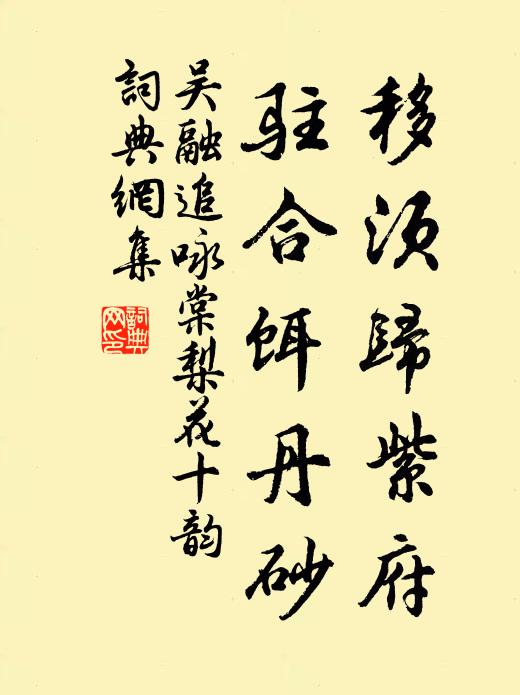 移須歸紫府
駐合餌丹砂
吴融追咏棠梨花十韵
詞典網集
詞典网印